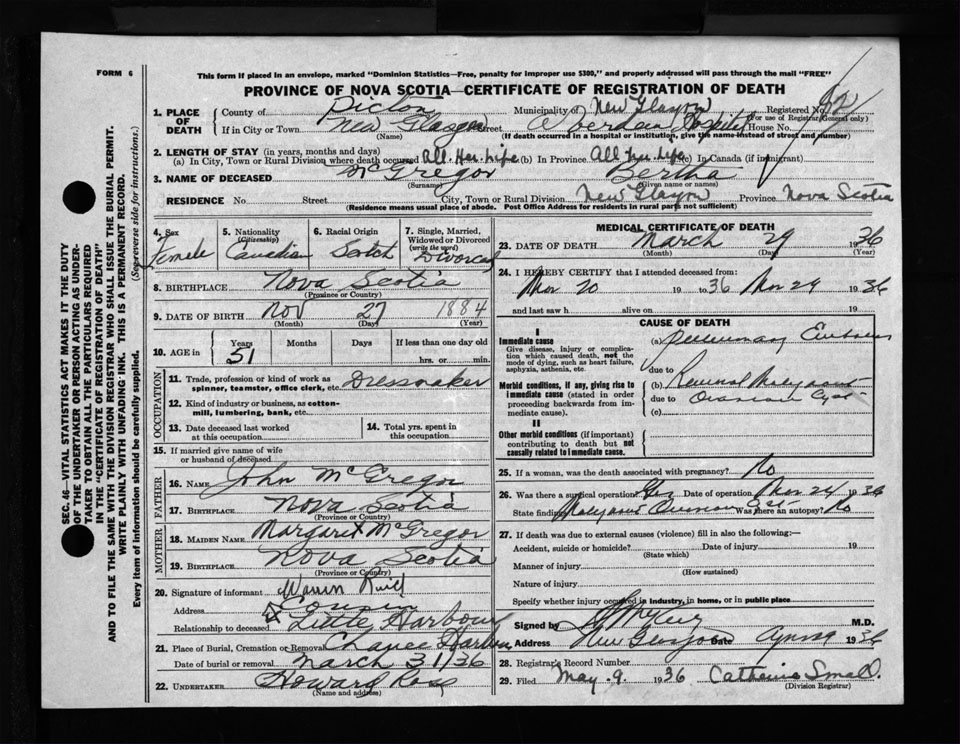 FORM 6
This form if placed in an envelope, marked "Dominion Statistics—Free, penalty for improper use $300," and properly addressed will pass through the mail "FREE"
PROVINCE OF NOVA SCOTIA—CERTIFICATE OF REGISTRATION OF DEATH
1. PLACE OF DEATH
County of Pictou Municipality of New Glasgow Registered No.
(For use of Registrar General only)
If in City or Town New Glasgow Street Aberdeen Hospital House No.
(Name) (If death occurred in a hospital or institution, give the name instead of street and number)
2. LENGTH OF STAY (in years, months and days)
(a) In City, Town or Rural Division where death occurred All Her Life (b) In Province All Her Life (c) In Canada (if immigrant)
3. NAME OF DECEASED McGregor Bertha
(Surname) (Given name or names)
RESIDENCE No. Street City, Town or Rural Division New Glasgow Province Nova Scotia
(Residence means usual place of abode. Post Office Address for residents in rural parts not sufficient)
4. Sex Female
5. Nationality (Citizenship) Canadian
6. Racial Origin Scotch
7. Single, Married, Widowed or Divorced (write the word) Divorced
8. BIRTHPLACE Nova Scotia
(Province or Country)
9. DATE OF BIRTH Nov 27 1884
(Month) (Day) (Year)
10. AGE in Years 51 Months Days If less than one day old
hrs. or min.
OCCUPATION
11. Trade, profession or kind of work as spinner, teamster, office clerk, etc. Dressmaker
12. Kind of industry or business, as cotton-mill, lumbering, bank, etc.
13. Date deceased last worked at this occupation
14. Total yrs. spent in this occupation
15. If married give name of wife or husband of deceased
FATHER
16. NAME John McGregor
17. BIRTHPLACE Nova Scotia
(Province or Country)
MOTHER
18. MAIDEN NAME Margaret McGregor
19. BIRTHPLACE Nova Scotia
(Province or Country)
20. Signature of informant Warren
Address Cousin
Relationship to deceased Little Harbour
21. Place of Burial, Cremation or Removal
Date of burial or removal March 31/36
22. UNDERTAKER Howard Ross
(Name and address)
MEDICAL CERTIFICATE OF DEATH
23. DATE OF DEATH March 29 1936
(Month) (Day) (Year)
24. I HEREBY CERTIFY that I attended deceased from:
Mar 20 19 to 36 Mar 29 1936
and last saw h alive on 19
CAUSE OF DEATH
I
Immediate cause
Give disease, injury or complication which caused death, not the mode of dying, such as heart failure, asphyxia, asthenia, etc.
(a) Pulmonary Embolus
due to
Morbid conditions, if any, giving rise to immediate cause (stated in order proceeding backwards from immediate cause).
(b) Removal Malignant
due to Ovarian Cyst
(c)
II
Other morbid conditions (if important) contributing to death but not causally related to immediate cause.
25. If a woman, was the death associated with pregnancy? No
26. Was there a surgical operation? Yes Date of operation Mar 24 1936
State findings Malignant Ovarian Cyst Was there an autopsy? No
27. If death was due to external causes (violence) fill in also the following:—
Accident, suicide or homicide? Date of injury 19
(State which)
Manner of injury
(How sustained)
Nature of injury
Specify whether injury occurred in industry, in home, or in public place
Signed by M.D.
Address New Glasgow Date 1936
28. Registrar's Record Number
29. Filed May 9 1936 Catherine Small
(Division Registrar)
SEC. 46—VITAL STATISTICS ACT MAKES IT THE DUTY
OF THE UNDERTAKER OR PERSON ACTING AS UNDER-
TAKER TO OBTAIN ALL THE PARTICULARS REQUIRED
IN THE "CERTIFICATE OF REGISTRATION OF DEATH"
AND TO FILE THE SAME WITH THE DIVISION REGISTRAR WHO SHALL ISSUE THE BURIAL PERMIT.
WRITE PLAINLY WITH UNFADING INK. THIS IS A PERMANENT RECORD.
Every item of information should be carefully supplied. (See reverse side for instructions.)